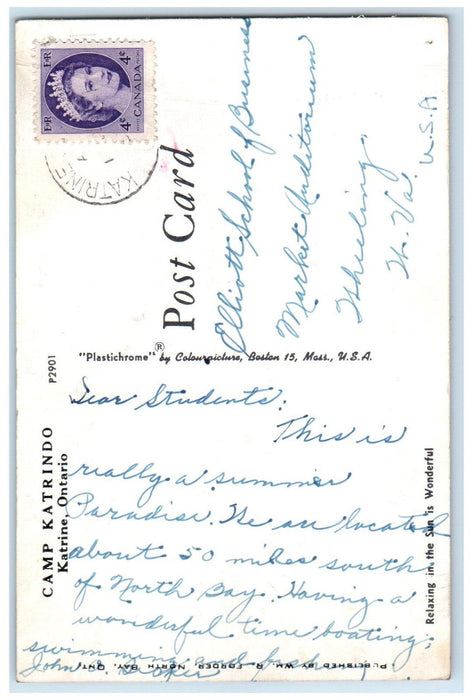 4¢ 4¢
E·R E·R
CANADA
KATRINE
Post Card
Elliott School of Business
Market Auditorium
Wheeling
W. Va.
U.S.A
"Plastichrome"® by Colourpicture, Boston 15, Mass., U.S.A.
P2901
CAMP KATRINDO
Katrine, Ontario
Relaxing in the Sun is Wonderful
Dear Students:
This is
really a summer
Paradise. We are located
about 50 miles south
of North Bay. Having a
wonderful time boating,
swimming and
PUBLISHED BY WM. R. FORDER, NORTH BAY, ONT.
John